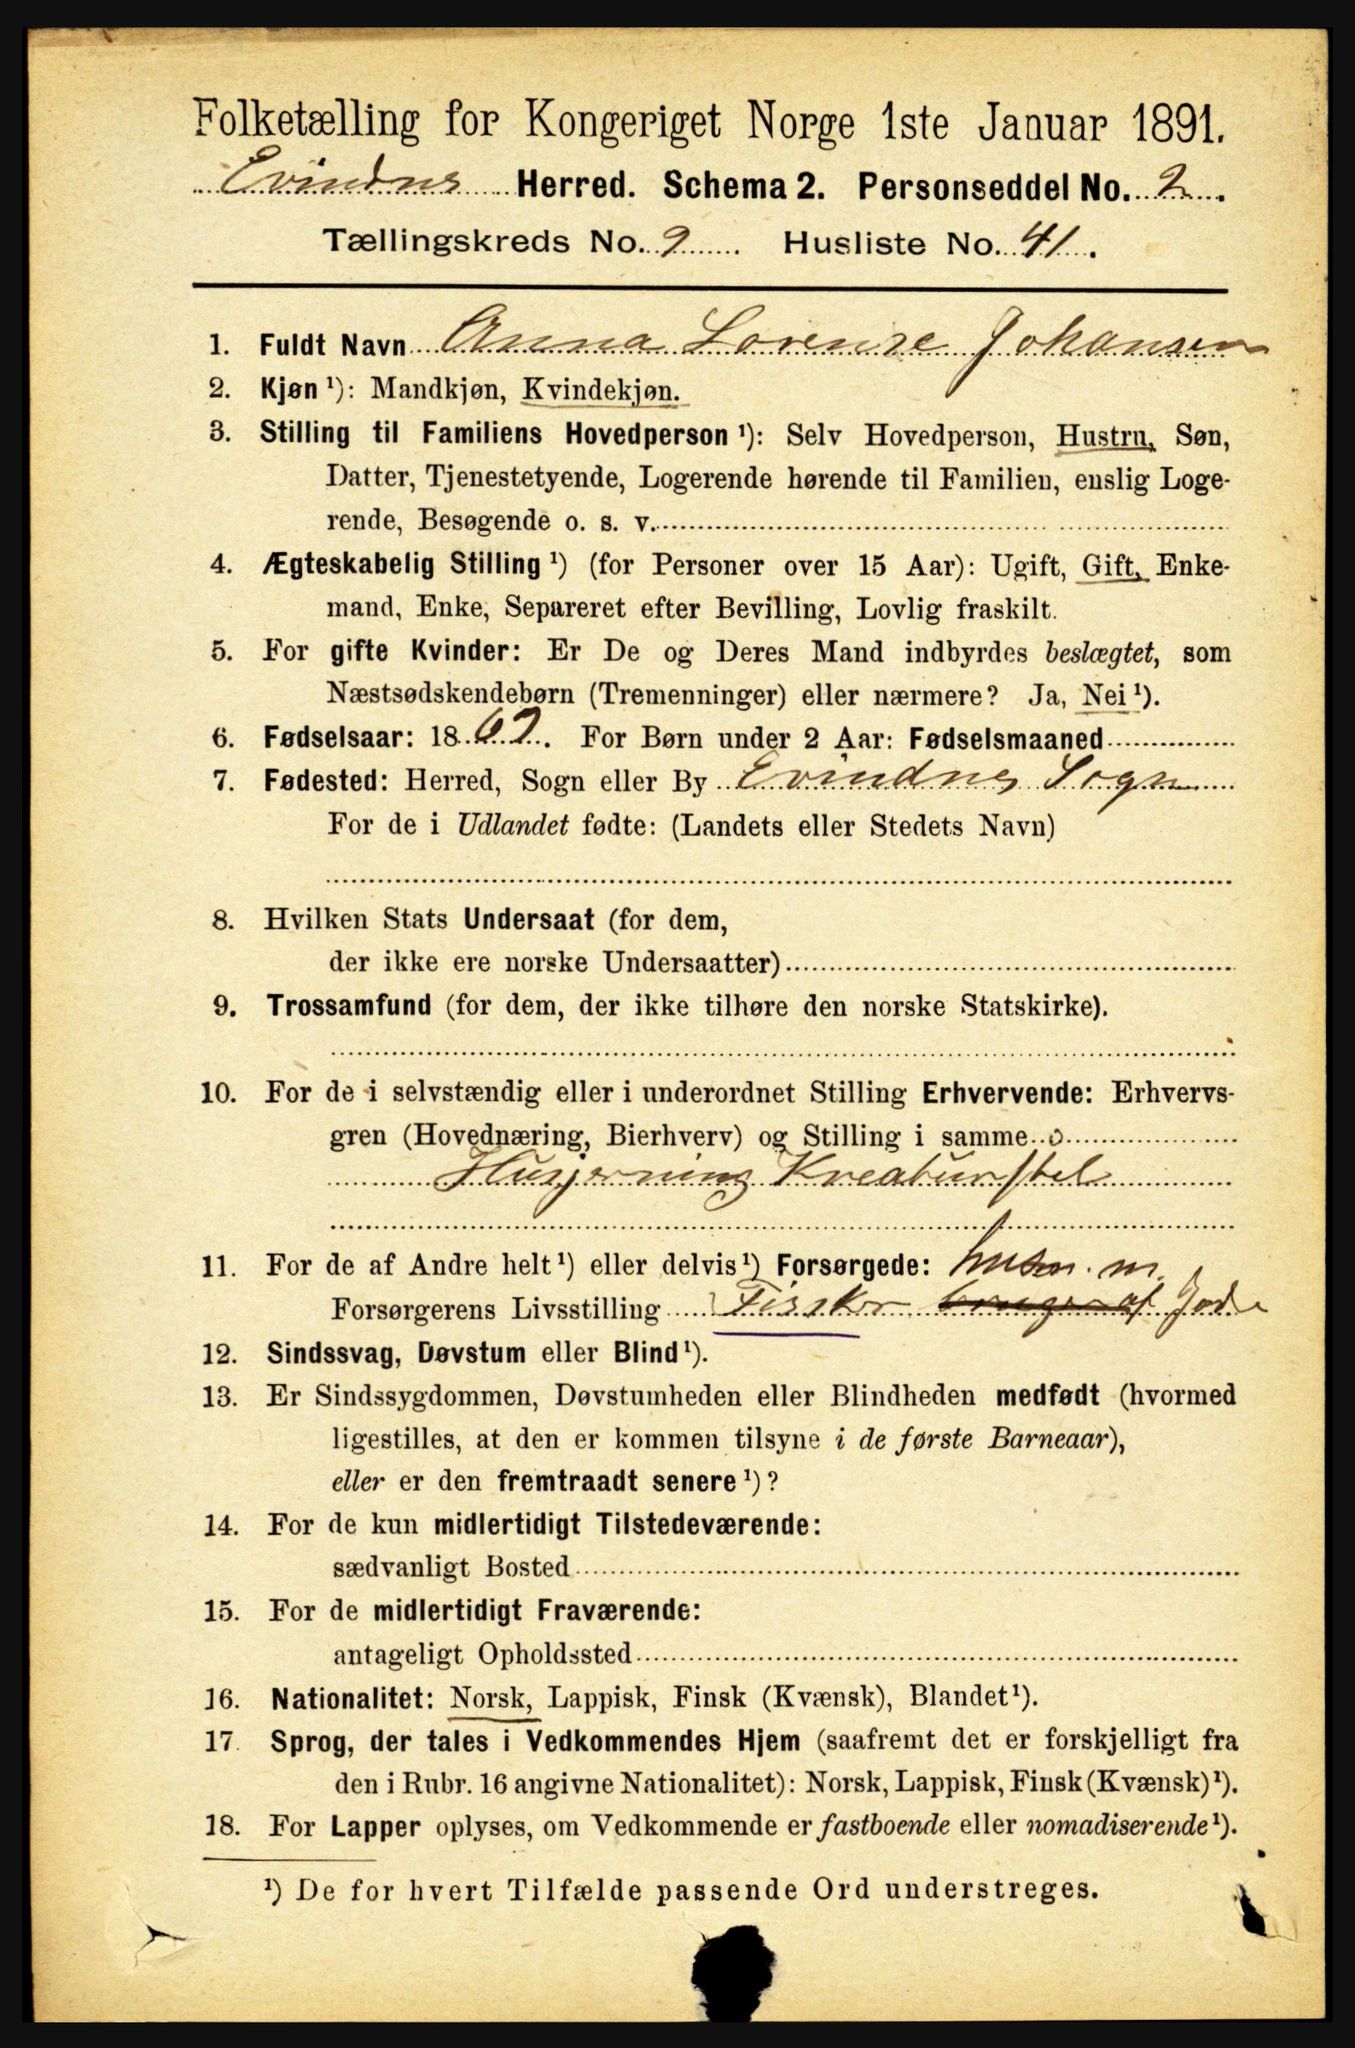 Folketælling for Kongeriget Norge 1ste Januar 1891.
Evindnes Herred. Schema 2. Personseddel No. 2.
Tællingskreds No. 9 Husliste No. 41.
1. Fuldt Navn Anna Lorense Johansen
2. Kjøn ¹): Mandkjøn, Kvindekjøn.
3. Stilling til Familiens Hovedperson ¹): Selv Hovedperson, Hustru, Søn,
Datter, Tjenestetyende, Logerende hørende til Familien, enslig Loge-
rende, Besøgende o. s. v.
4. Ægteskabelig Stilling ¹) (for Personer over 15 Aar): Ugift, Gift, Enke-
mand, Enke, Separeret efter Bevilling, Lovlig fraskilt.
5. For gifte Kvinder: Er De og Deres Mand indbyrdes beslægtet, som
Næstsødskendebørn (Tremenninger) eller nærmere? Ja, Nei ¹).
6. Fødselsaar: 1862. For Børn under 2 Aar: Fødselsmaaned
7. Fødested: Herred, Sogn eller By Evindnes Sogn
For de i Udlandet fødte: (Landets eller Stedets Navn)
8. Hvilken Stats Undersaat (for dem,
der ikke ere norske Undersaatter)
9. Trossamfund (for dem, der ikke tilhøre den norske Statskirke).
10. For de i selvstændig eller i underordnet Stilling Erhvervende: Erhvervs-
gren (Hovednæring, Bierhverv) og Stilling i samme o
Husjerning Kreaturstel
11. For de af Andre helt ¹) eller delvis ¹) Forsørgede: husm. m.
Forsørgerens Livsstilling Fisker bruger af Jord
12. Sindssvag, Døvstum eller Blind ¹).
13. Er Sindssygdommen, Døvstumheden eller Blindheden medfødt (hvormed
ligestilles, at den er kommen tilsyne i de første Barneaar),
eller er den fremtraadt senere ¹)?
14. For de kun midlertidigt Tilstedeværende:
sædvanligt Bosted
15. For de midlertidigt Fraværende:
antageligt Opholdssted
16. Nationalitet: Norsk, Lappisk, Finsk (Kvænsk), Blandet ¹).
17. Sprog, der tales i Vedkommendes Hjem (saafremt det er forskjelligt fra
den i Rubr. 16 angivne Nationalitet): Norsk, Lappisk, Finsk (Kvænsk) ¹).
18. For Lapper oplyses, om Vedkommende er fastboende eller nomadiserende ¹).
¹) De for hvert Tilfælde passende Ord understreges.